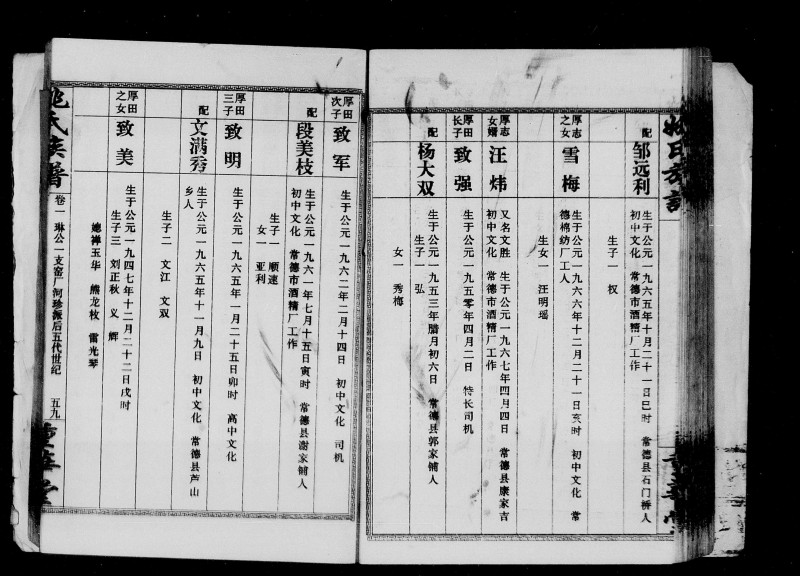 配
邹远利
生于公元一九六五年十月二十一日巳时 常德县石门桥人
初中文化 常德市酒精厂工作
生子一 权
厚志
之女
雪梅
生于公元一九六六年十二月二十一日亥时 初中文化 常
德棉纺厂工人
生女一 汪明瑶
厚志
女婿
汪炜
又名文胜 生于公元一九六七年四月四日 常德县康家吉
初中文化 常德市酒精厂工作
厚田
长子
致强
生于公元一九五零年四月二日 特长司机
配
杨大双
生于公元一九五三年腊月初六日 常德县郭家铺人
生子一 弘
女一 秀梅
厚田
次子
致军
生于公元一九六二年二月十四日 初中文化 司机
配
段美枝
生于公元一九六一年七月十五日寅时 常德县谢家铺人
初中文化 常德市酒精厂工作
生子一 顺速
女一 亚利
厚田
三子
致明
生于公元一九六五年一月二十五日卯时 高中文化
配
文满秀
生于公元一九六五年十一月九日 初中文化 常德县芦山
乡人
生子二 文江 文双
厚田
之女
致美
生于公元一九四七年十二月二十二日戌时
生子三 刘正秋 义 辉
媳禅玉华 熊龙枚 雷光琴
氏族谱
卷一 琳公一支窑厂河珍派后五代世纪 五九